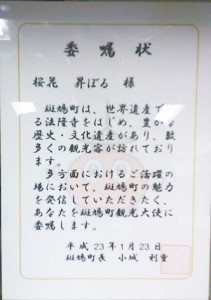 委嘱状
桜花 昇ぼる 様
斑鳩町は、世界遺産であ
る法隆寺をはじめ、豊かな
歴史・文化遺産があり、数
多くの観光客が訪れており
ます。
多方面におけるご活躍の
場において、斑鳩町の魅力
を発信していただきたく、
あなたを斑鳩町観光大使に
委嘱します。
平成23年1月23日
斑鳩町長 小城 利重